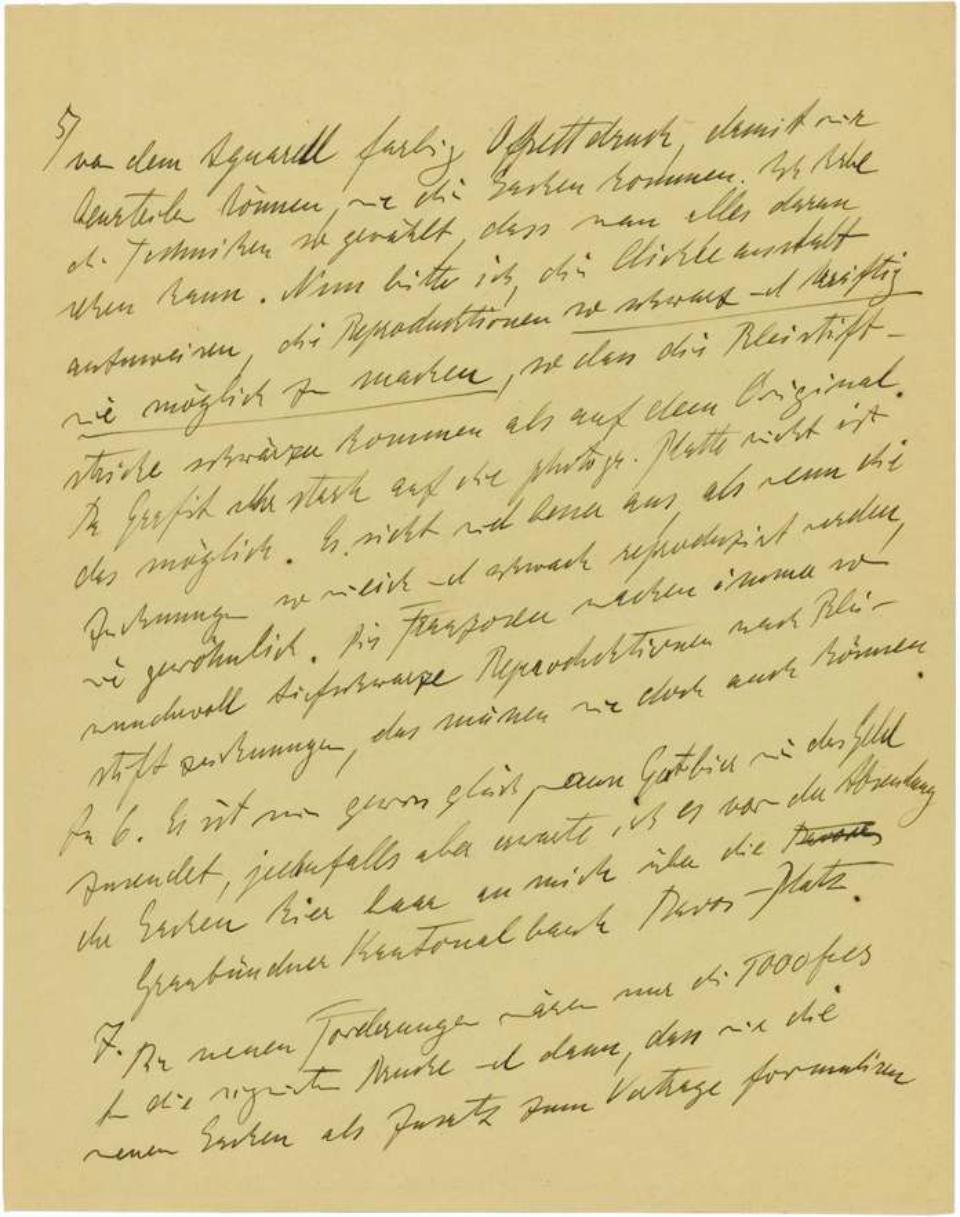 5/
von dem Aquarell farbig Offsettdruck, damit wir
beurteilen können, wie die Sachen kommen. Ich habe
die Techniken so gewählt, dass man alles daran
sehen kann. Nun bitte ich, die Clichéeanstalt
anzuweisen, die Reproduktionen so schwarz und kräftig
wie möglich zu machen, so dass die Bleistift-
striche schwärzer kommen als auf dem Original.
Da Grafit sehr stark auf die photogr. Platte wirkt ist
das möglich. Es sieht viel besser aus, als wenn die
Zeichnungen so weich und schwach reproduziert werden,
wie gewöhnlich. Die Franzosen machen immer so
wundervoll tiefschwarze Reproduktionen nach Blei-
stiftzeichnungen, das müssen wir doch auch können.
Zu 6. Es ist mir gewiss gleich, wann Gutbier mir das Geld
zusendet, jedenfalls aber erwarte ich es vor der Absendung
der Sachen hier baar an mich über die Davoser
Graubündner Kantonalbank Davos-Platz.
7. Die neuen Forderungen wären nur die 1000 frcs
für die signierten Drucke und dann, dass wir die
neuen Sachen als Zusatz zum Vertrage formulieren